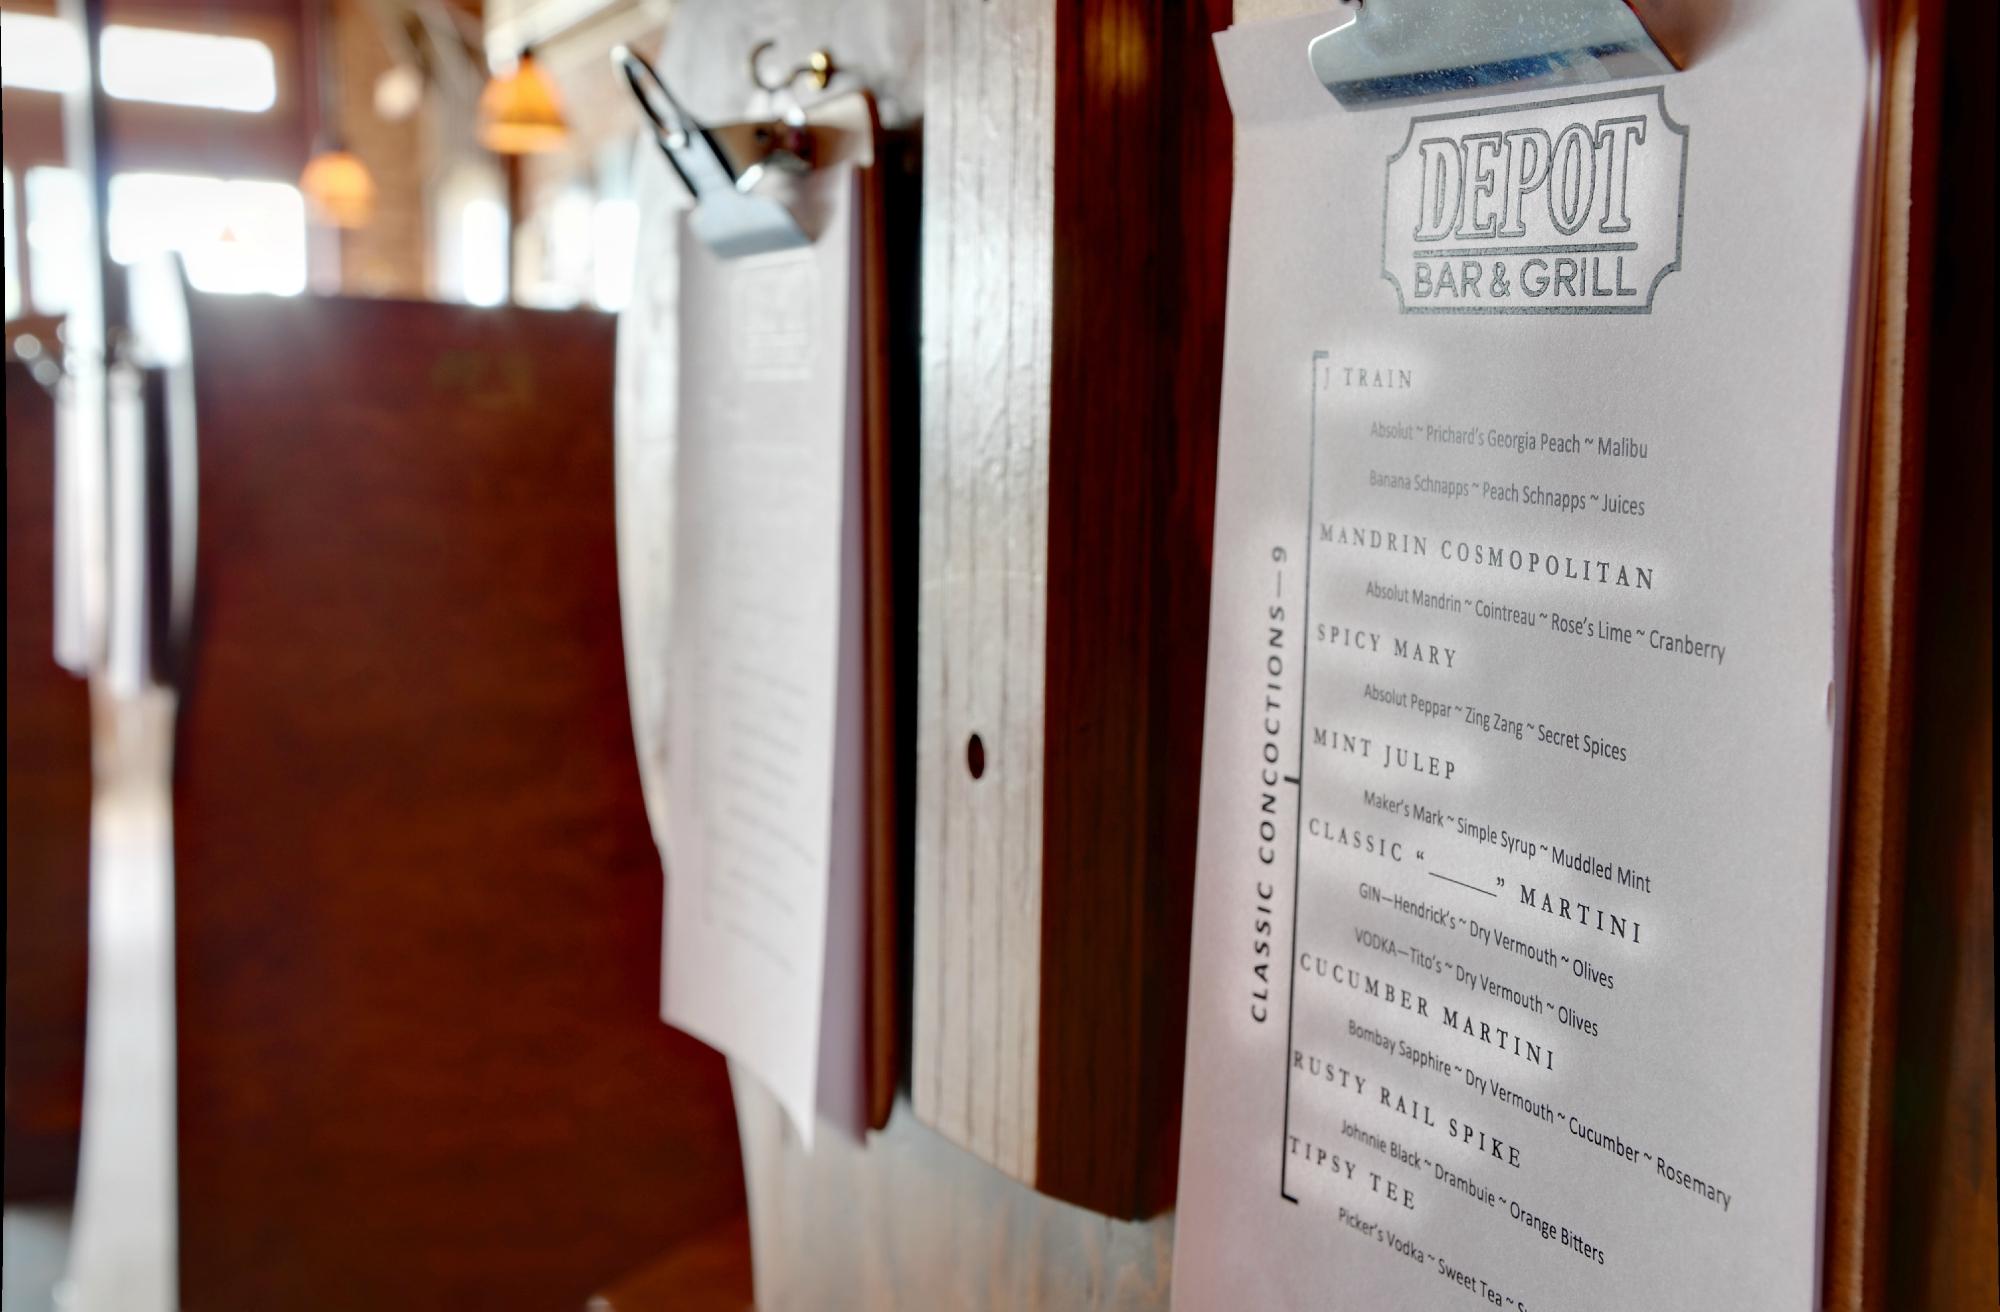 DEPOT
BAR & GRILL
CLASSIC CONCOCTIONS—9
J TRAIN
Absolut ~ Prichard's Georgia Peach ~ Malibu
Banana Schnapps ~ Peach Schnapps ~ Juices
MANDRIN COSMOPOLITAN
Absolut Mandrin ~ Cointreau ~ Rose's Lime ~ Cranberry
SPICY MARY
Absolut Peppar ~ Zing Zang ~ Secret Spices
MINT JULEP
Maker's Mark ~ Simple Syrup ~ Muddled Mint
CLASSIC “______” MARTINI
GIN—Hendrick's ~ Dry Vermouth ~ Olives
VODKA—Tito's ~ Dry Vermouth ~ Olives
CUCUMBER MARTINI
Bombay Sapphire ~ Dry Vermouth ~ Cucumber ~ Rosemary
RUSTY RAIL SPIKE
Johnnie Black ~ Drambuie ~ Orange Bitters
TIPSY TEE
Picker's Vodka ~ Sweet Tea ~